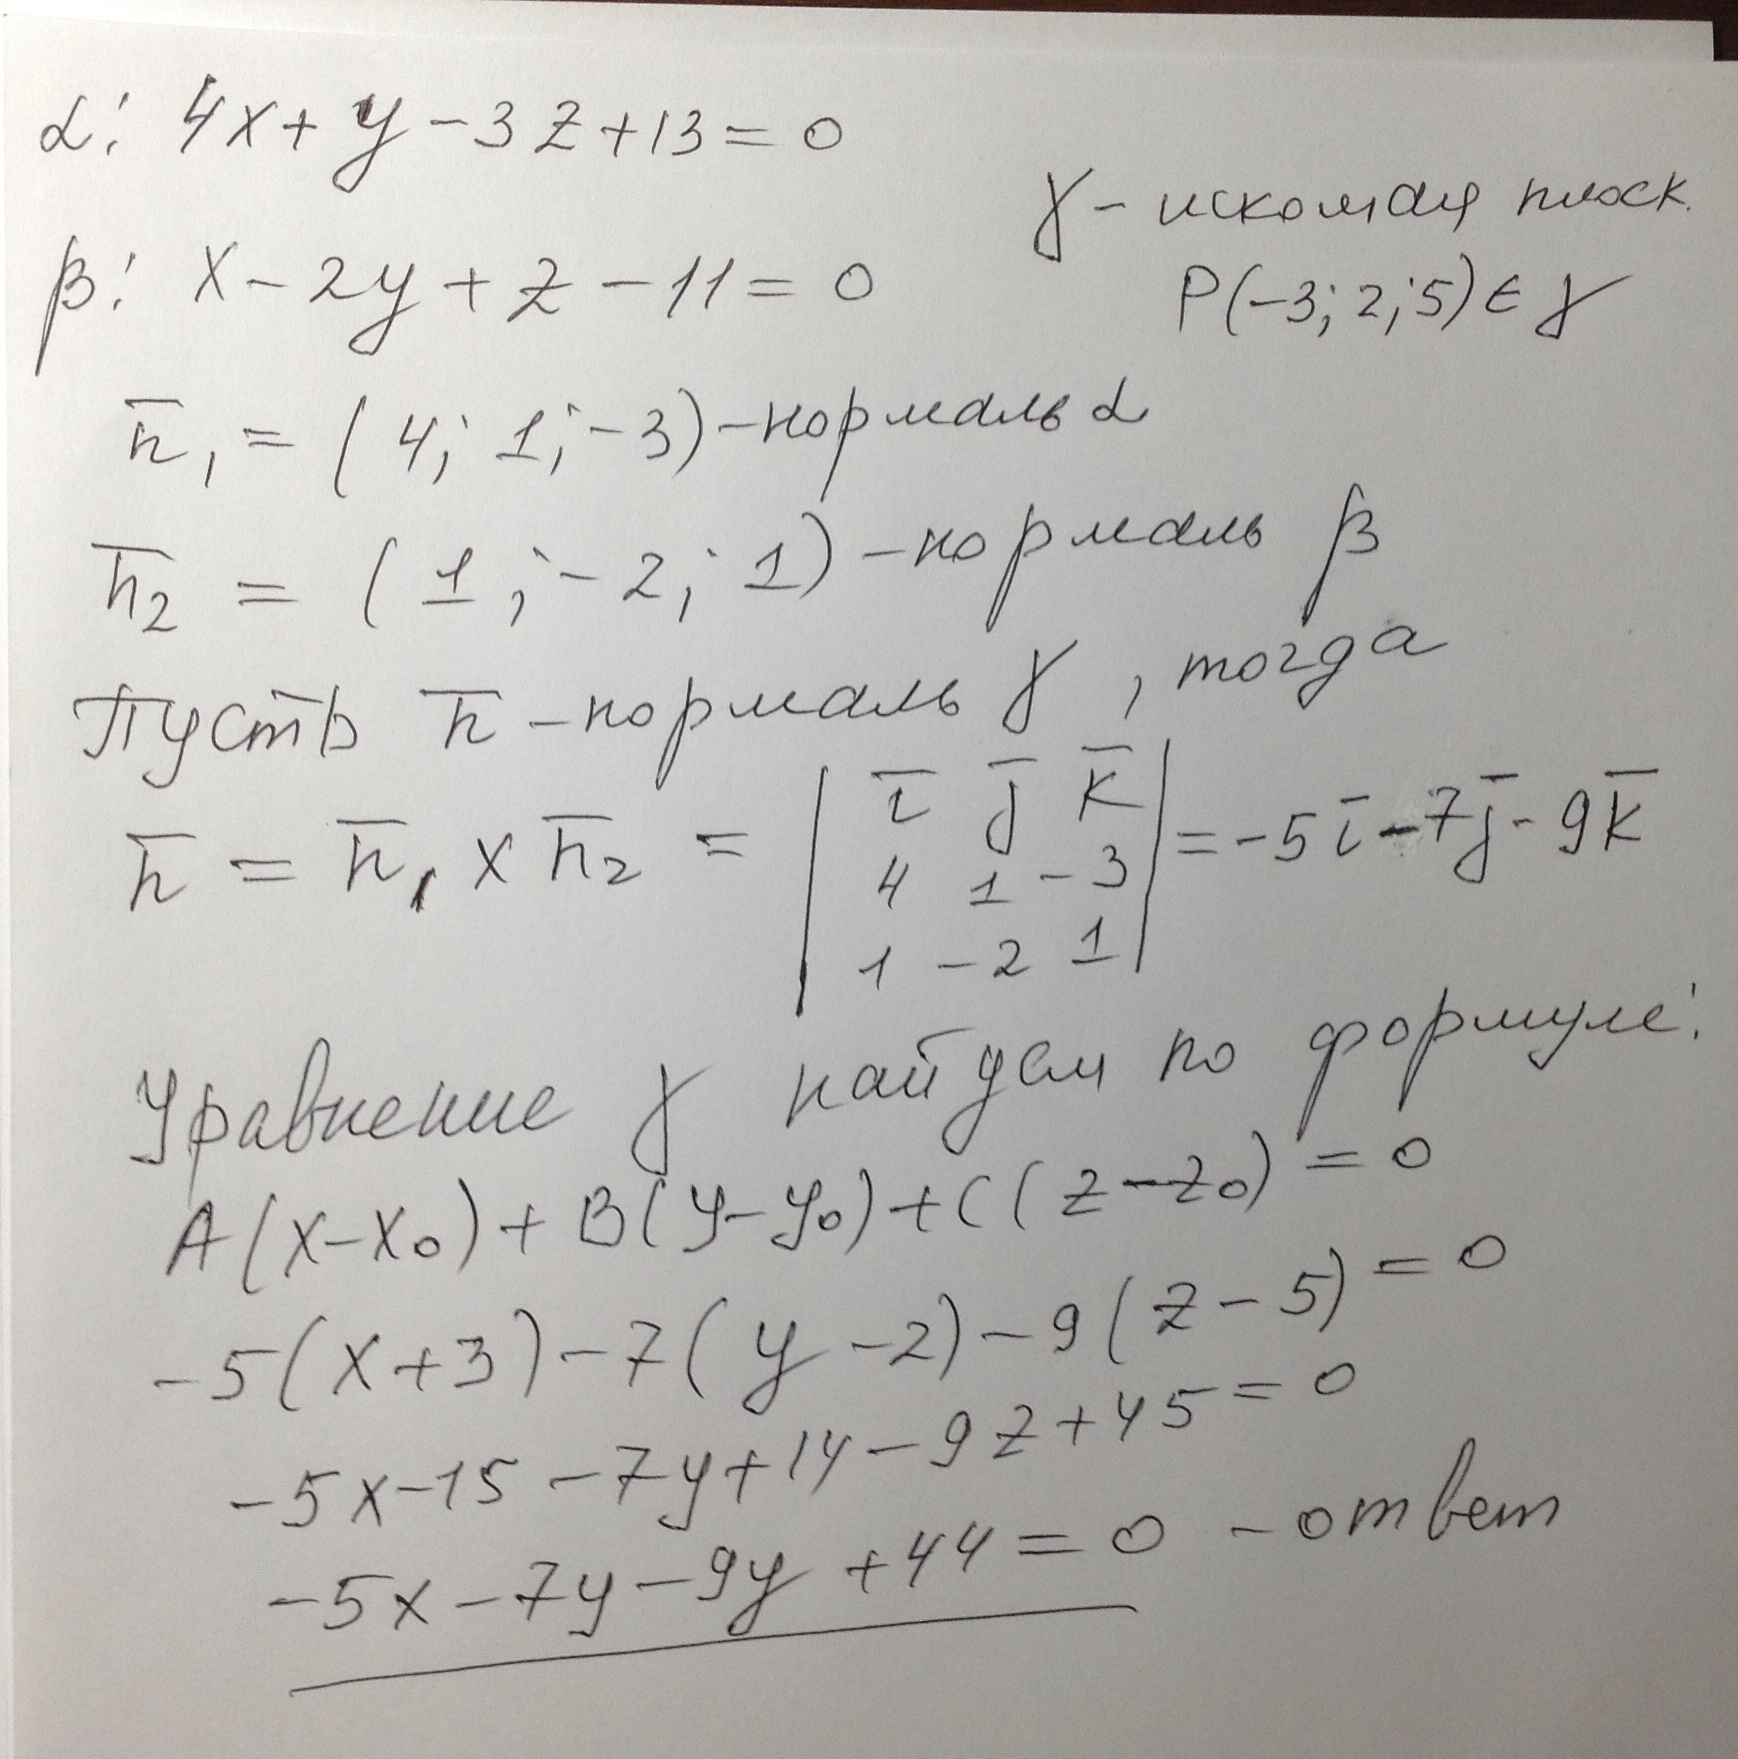 α: 4x+y-3z+13=0
γ - искомая плоск.
β: x-2y+z-11=0
P(-3; 2; 5) ∈ γ
n̅₁ = (4; 1; -3) - нормаль α
n̅₂ = (1; -2; 1) - нормаль β
Пусть n̅ - нормаль γ, тогда
n̅ = n̅₁ × n̅₂ = | i̅ j̅ k̅ | = -5i̅ - 7j̅ - 9k̅
4 1 -3
1 -2 1
Уравнение γ найдем по формуле:
A(x-x₀)+B(y-y₀)+C(z-z₀)=0
-5(x+3)-7(y-2)-9(z-5)=0
-5x-15-7y+14-9z+45=0
-5x-7y-9y+44=0 - ответ